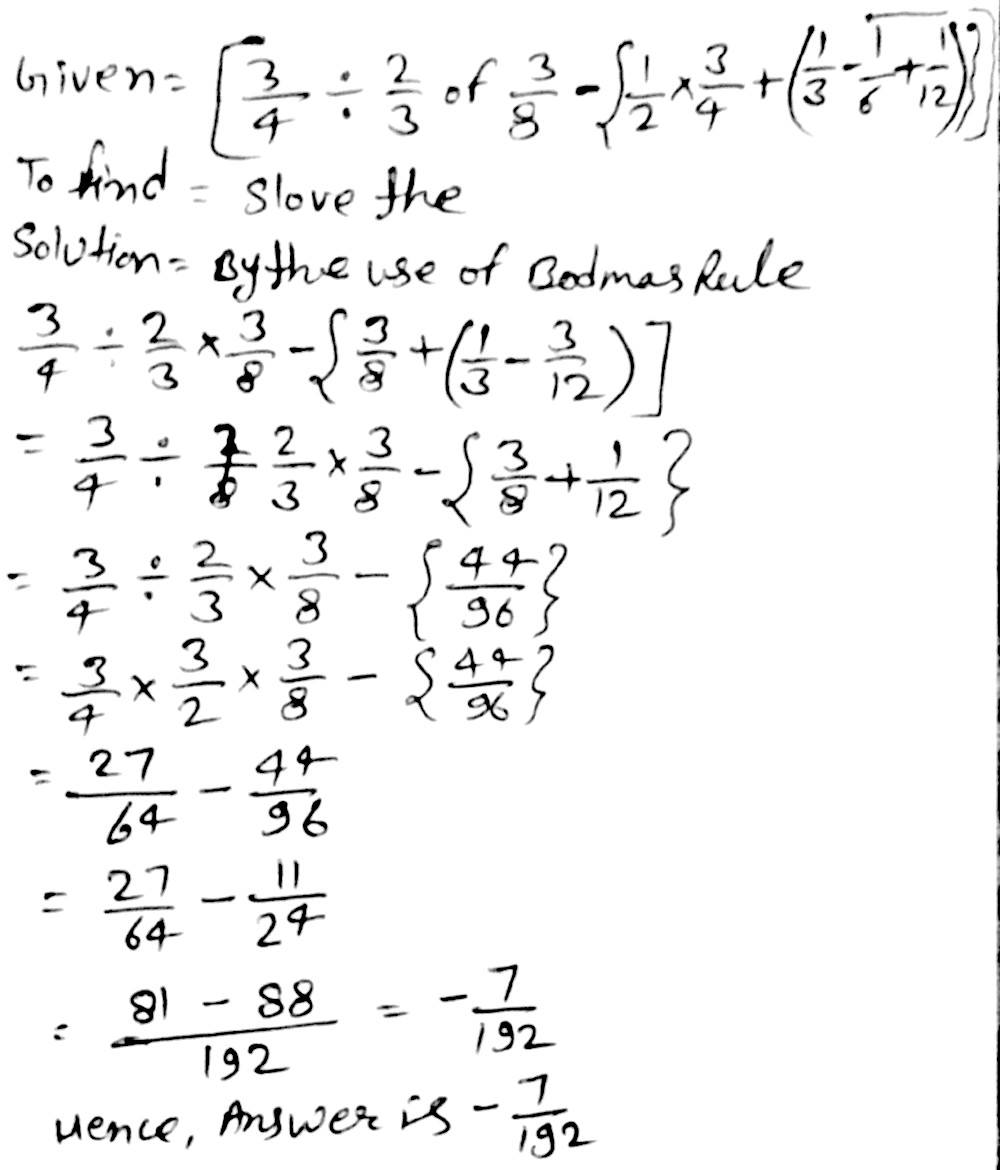 Given = [3/4 ÷ 2/3 of 3/8 - {1/2 × 3/4 + (1/3 - 1/6 + 1/12)}]
To find = Slove the
Solution = By the use of Bodmas Rule
3/4 ÷ 2/3 × 3/8 - { 3/8 + (1/3 - 3/12 ) ]
= 3/4 ÷ 2/3 × 3/8 - { 3/8 + 1/12 }
= 3/4 ÷ 2/3 × 3/8 - { 44/96 }
= 3/4 × 3/2 × 3/8 - { 44/96 }
= 27/64 - 44/96
= 27/64 - 11/24
= 81 - 88/192 = - 7/192
Hence, Answer is - 7/192